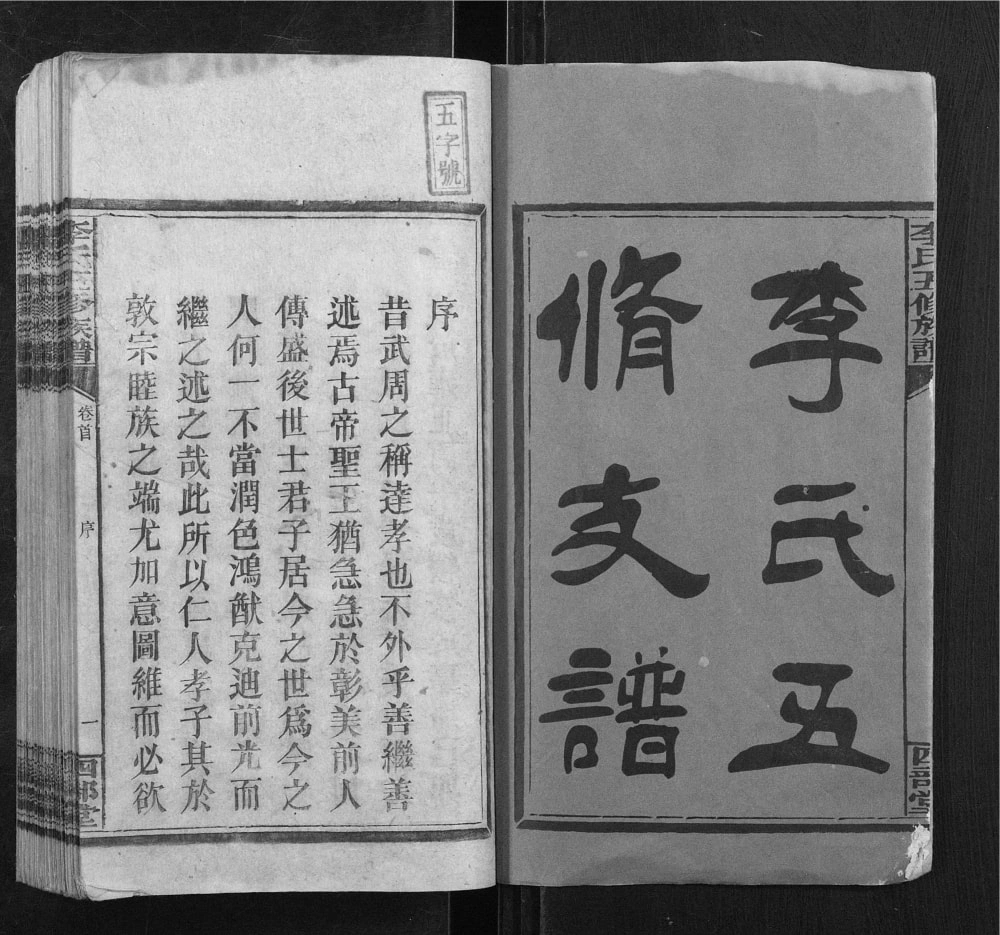 李氏五
脩支譜
李氏五修族譜
四部堂
五字號
序
昔武周之稱達孝也不外乎善繼善
述焉古帝聖王猶急急於彰美前人
傳盛後世士君子居今之世爲今之
人何一不當潤色鴻猷克迪前光而
繼之述之哉此所以仁人孝子其於
敦宗睦族之端尤加意圖維而必欲
李氏五修族譜
卷首
序
一
四部堂